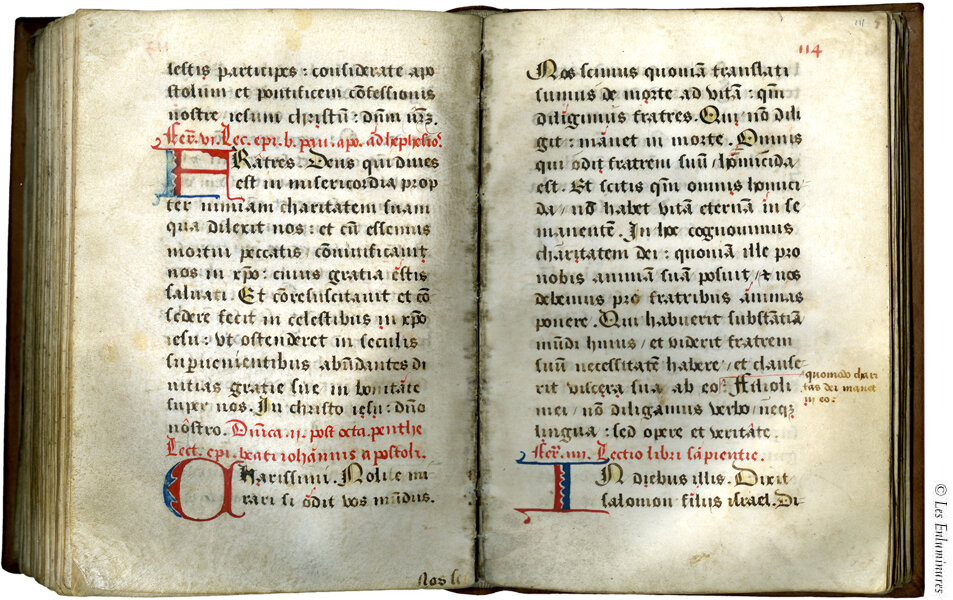 lestis participes : considerate apo
stolum et pontificem cōfessionis
nostre iesum christū : dūm nr̄ꝫ.
fer̄. vi. Lec. epi. b. pau. apo. ad hephesio.
FRatres Deus qui dives
est in misericordia prop
ter nimiam charitatem suam
qua dilexit nos : et cū essemus
mortui peccatis / cōnvificavit
nos in xp̄o : cuius gratia ēstis
salvati. Et cōresuscitavit et cō
sedere fecit in celestibus in xp̄o
iesu : vt ostenderet in seculis
supervenientibus abūdantes di
vitias gratie sue in bonitāte
super nos. In christo iesu : dn̄o
nōstro. Dn̄ica. ii. post octa. penthe
Lect. epi. beati iohānnis apostoli.
CHarissimi. Nolite mi
rari si ōdit vos mūdus.
Nos sc
114
Nos scimus quoniā translati
sumus de morte ad vitā : qm̄
diligimus fratres. Qui nō dili
git : manet in morte. Omnis
qui odit fratrem suū / homicida
est. Et scitis qm̄ omnis homici
da / nō habet vitā eternā in se
manentē. In hoc cognovimus
charitatem dei : quoniā ille pro
nobis animā suā posuit / et nos
debemus pro fratribus animas
ponere. Qui habuerit substātiā
mūdi huius / et viderit fratrem
suū necessitatē habere / et clause
rit viscera sua ab eo : Filioli
quomodo chari
tas dei manet
in eo :
mei / nō diligamus verbo / neqꝫ
lingua : sed opere et veritāte.
fer̄. iiii. Lectio libri sāpientie.
IN diebus illis. Dixit
salomon filiis israel. Di
© Les Enluminures